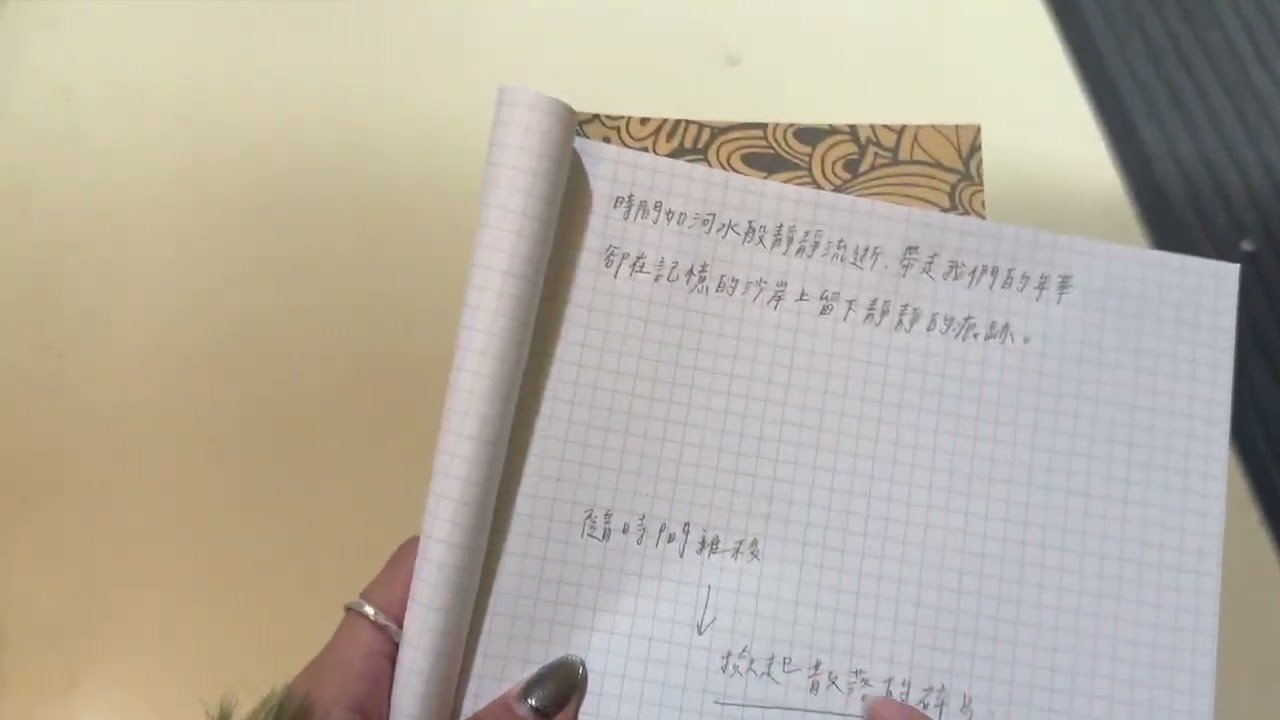 時間如河水般靜靜流逝、帶走我們的年華
卻在記憶的沙岸上留下靜靜的痕跡。
隨時間難移
↓
撿起散落的碎片